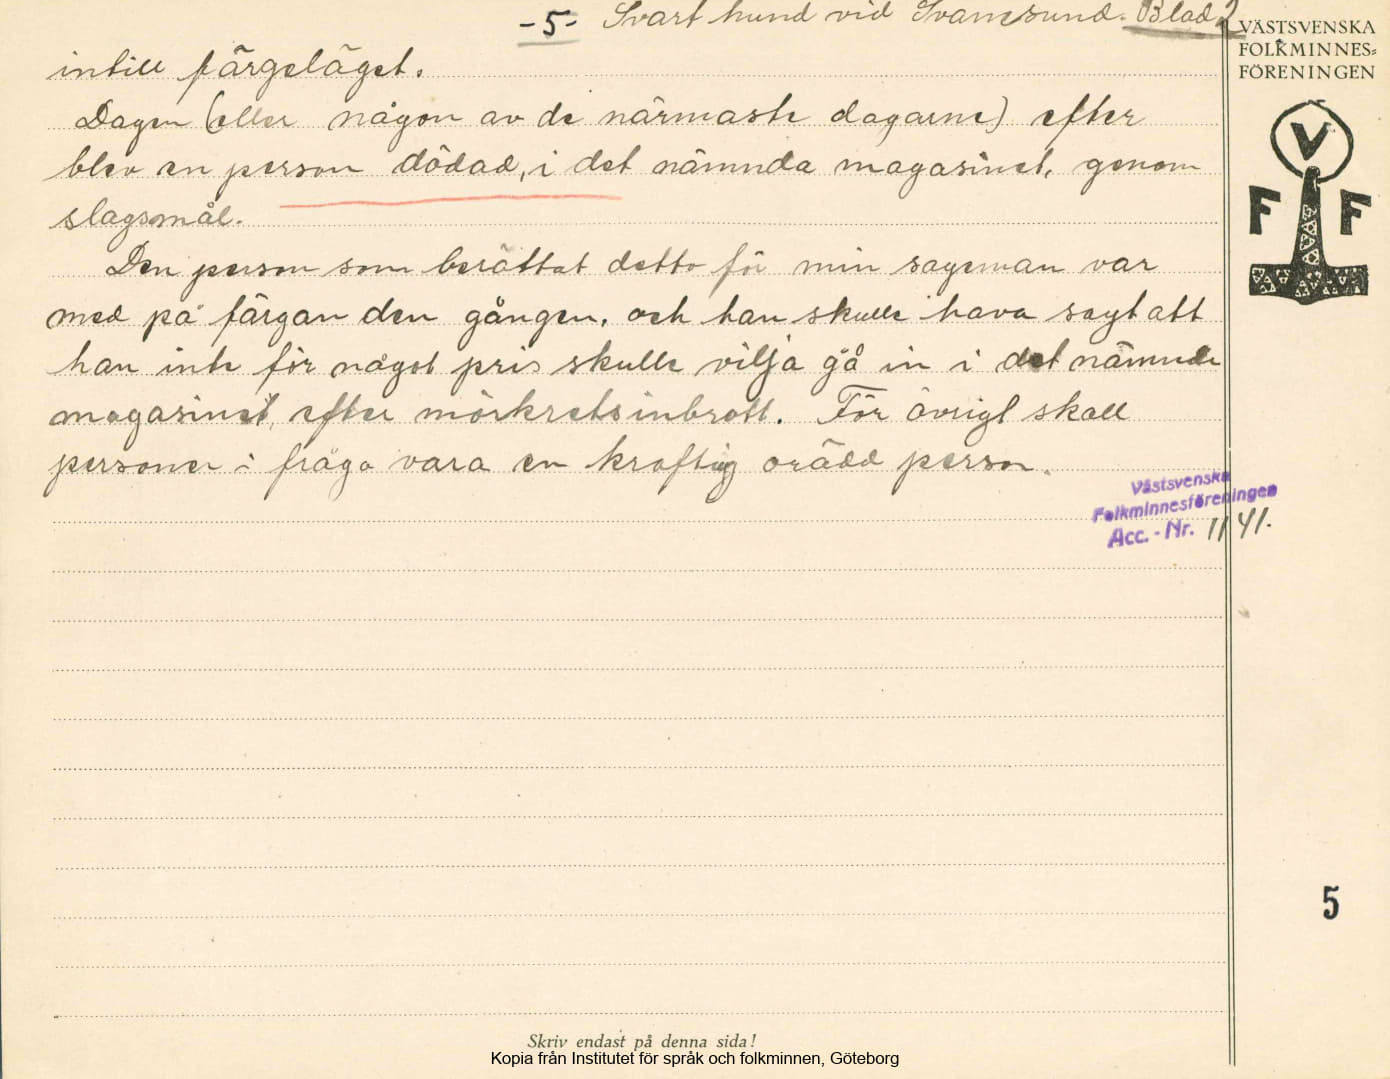 -5- Svart hund vid Svanesund. Blad 2
VÄSTSVENSKA
FOLKMINNES=
FÖRENINGEN
V
F F
intill färgeläget.
Dagen (eller någon av de närmaste dagarne) efter
blev en person dödad, i det nämnda magasinet, genom
slagsmål.
Den person som berättat detta för min sagesman var
med på färgan den gången, och han skulle hava sagt att
han inte för något pris skulle vilja gå in i det nämnde
magasinet, efter mörkrets inbrott. För övrigt skall
personen i fråga vara en kraftig orädd person.
Västsvenska
Folkminnesföreningen
Acc. - Nr. 1141.
5
Skriv endast på denna sida!
Kopia från Institutet för språk och folkminnen, Göteborg